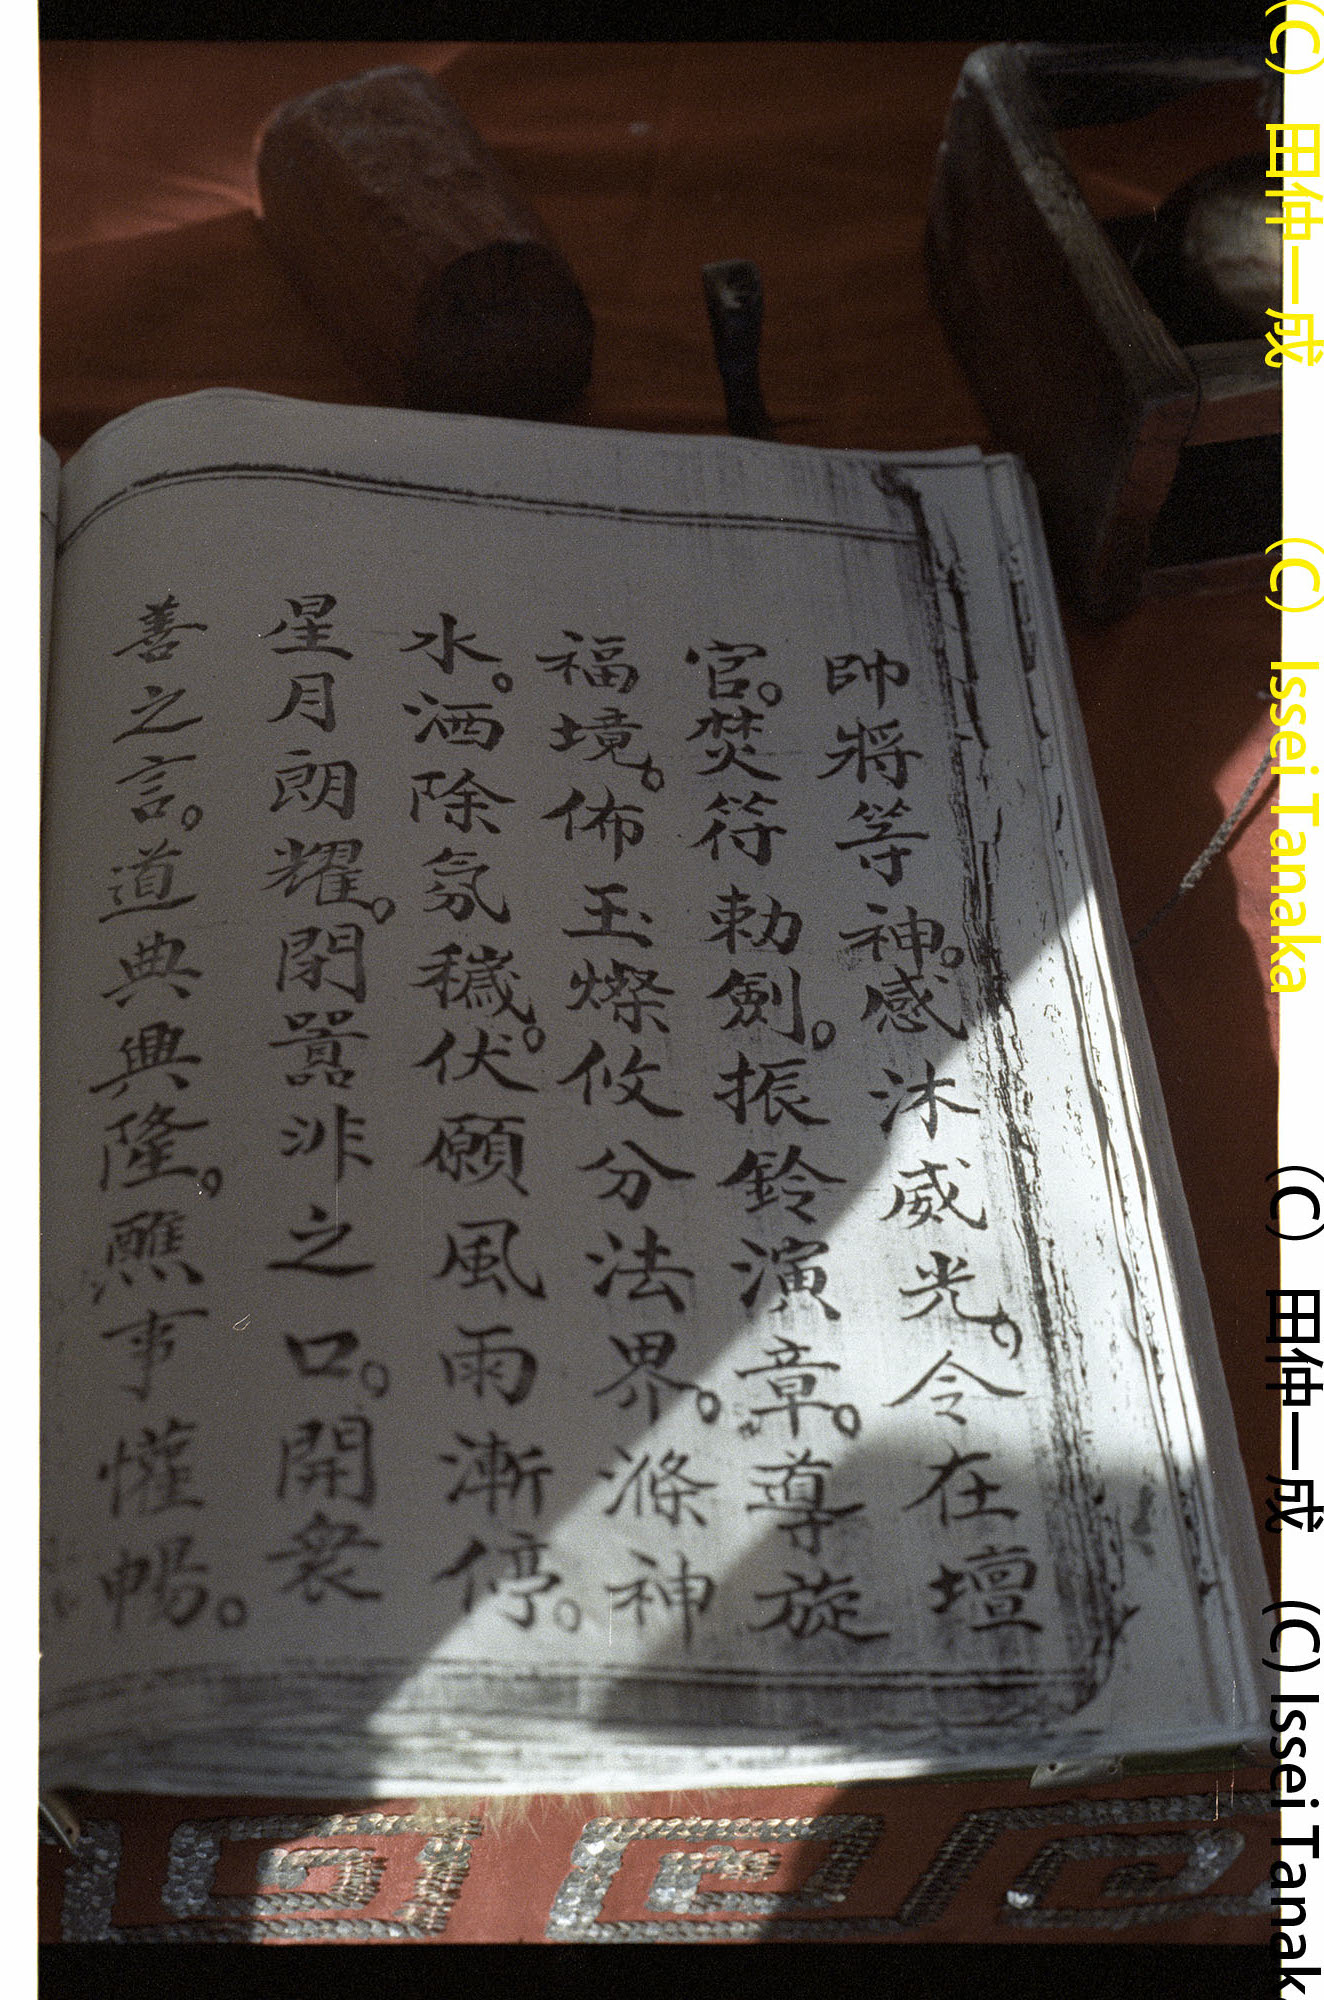 帥將等神。感沐威光。令在壇
官。焚符勅劍。振鈴演章。導旋
福境。佈玉燦攸分法界。滌神
水。洒除氛穢。伏願風雨漸停。
星月朗耀。閉嚣非之口。開衆
善之言。道典興隆。醮事懽暢。
(C) 田仲一成 (C) Issei Tanaka
(C) 田仲一成 (C) Issei Tanak